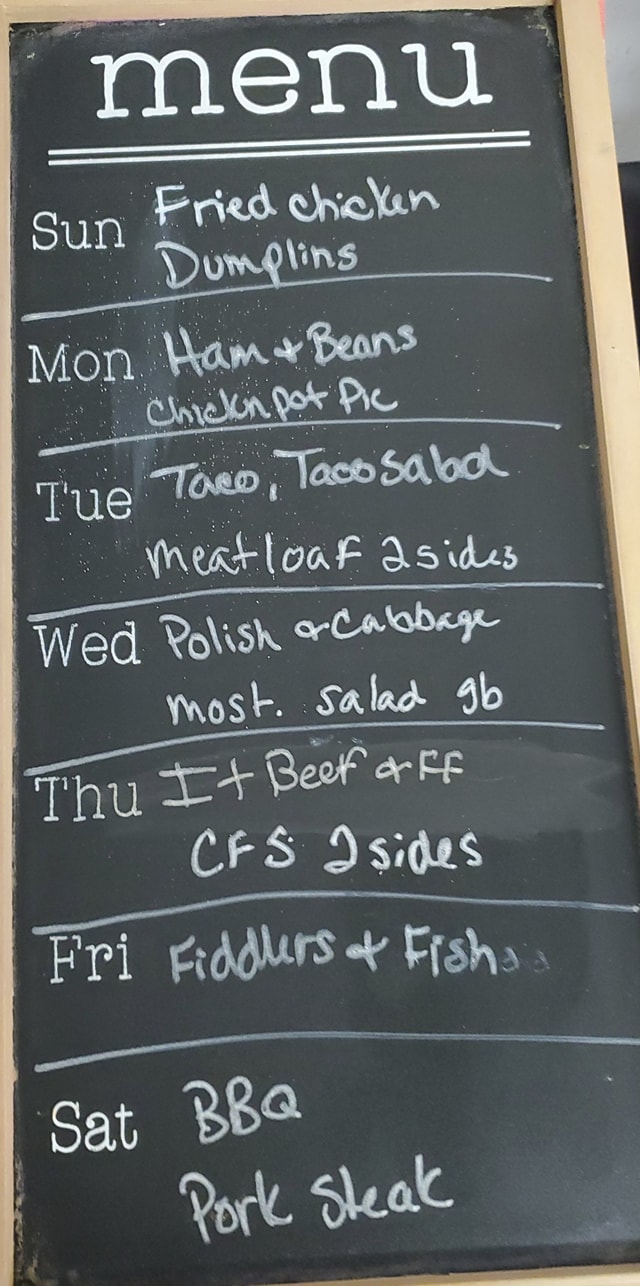 menu
Sun Fried chicken
Dumplins
Mon Ham & Beans
Chickn pot Pie
Tue Taco, Taco Salad
meatloaf 2 sides
Wed Polish & Cabbage
most. salad gb
Thu It Beef & FF
CFS 2 sides
Fri Fiddlers & Fish
Sat BBQ
Pork Steak